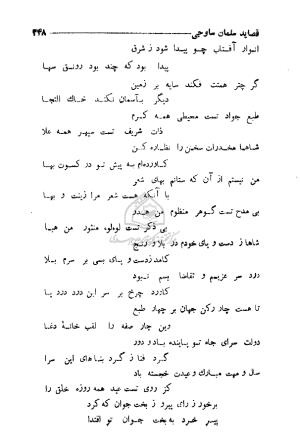 قصاید سلمان ساوجی ۴۴۸
انوار آفتاب چو پیدا شود ز شرق
پیدا بود که چند بود رونق سها
گر چتر همتت فکند سایه بر زمین
دیگر بآسمان نکند خاک التجا
طبع جواد تست محیطی همه کرم
ذات شریف تست سپهر همه علا
شاها مخدرات سخن را نظاره کن
کآورده‌ام به پیش تو در کسوت بها
من نیستم از آن که ستانم بهای شعر
با آنکه هست شعر مرا زینت و بها
بی مدح تست گوهر منظوم من هدر
بی ذکر تست لولو منثور من هبا
شاها ز دست و پای خودم در بلا و رنج
کآمد ز دست و پای بسی بر سرم بلا
درد سر عزیمم و تقاضا بسم نبود
کآورد چرخ بر سر این درد درد پا
تا هست چار رکن جهان بر چهار طبع
وین چار صفه را لقب خانهٔ دغا
دولت سرای جاه تو پاینده باد و دور
گرد فنا ز گرد بناهای این سرا
سال و مهت مبارک و عیدت خجسته باد
کز روی تست عید همه روزه خلق را
برخور ز رای پیر و ز بخت جوان که کرد
پیر خرد به بخت جوان تو اقتدا